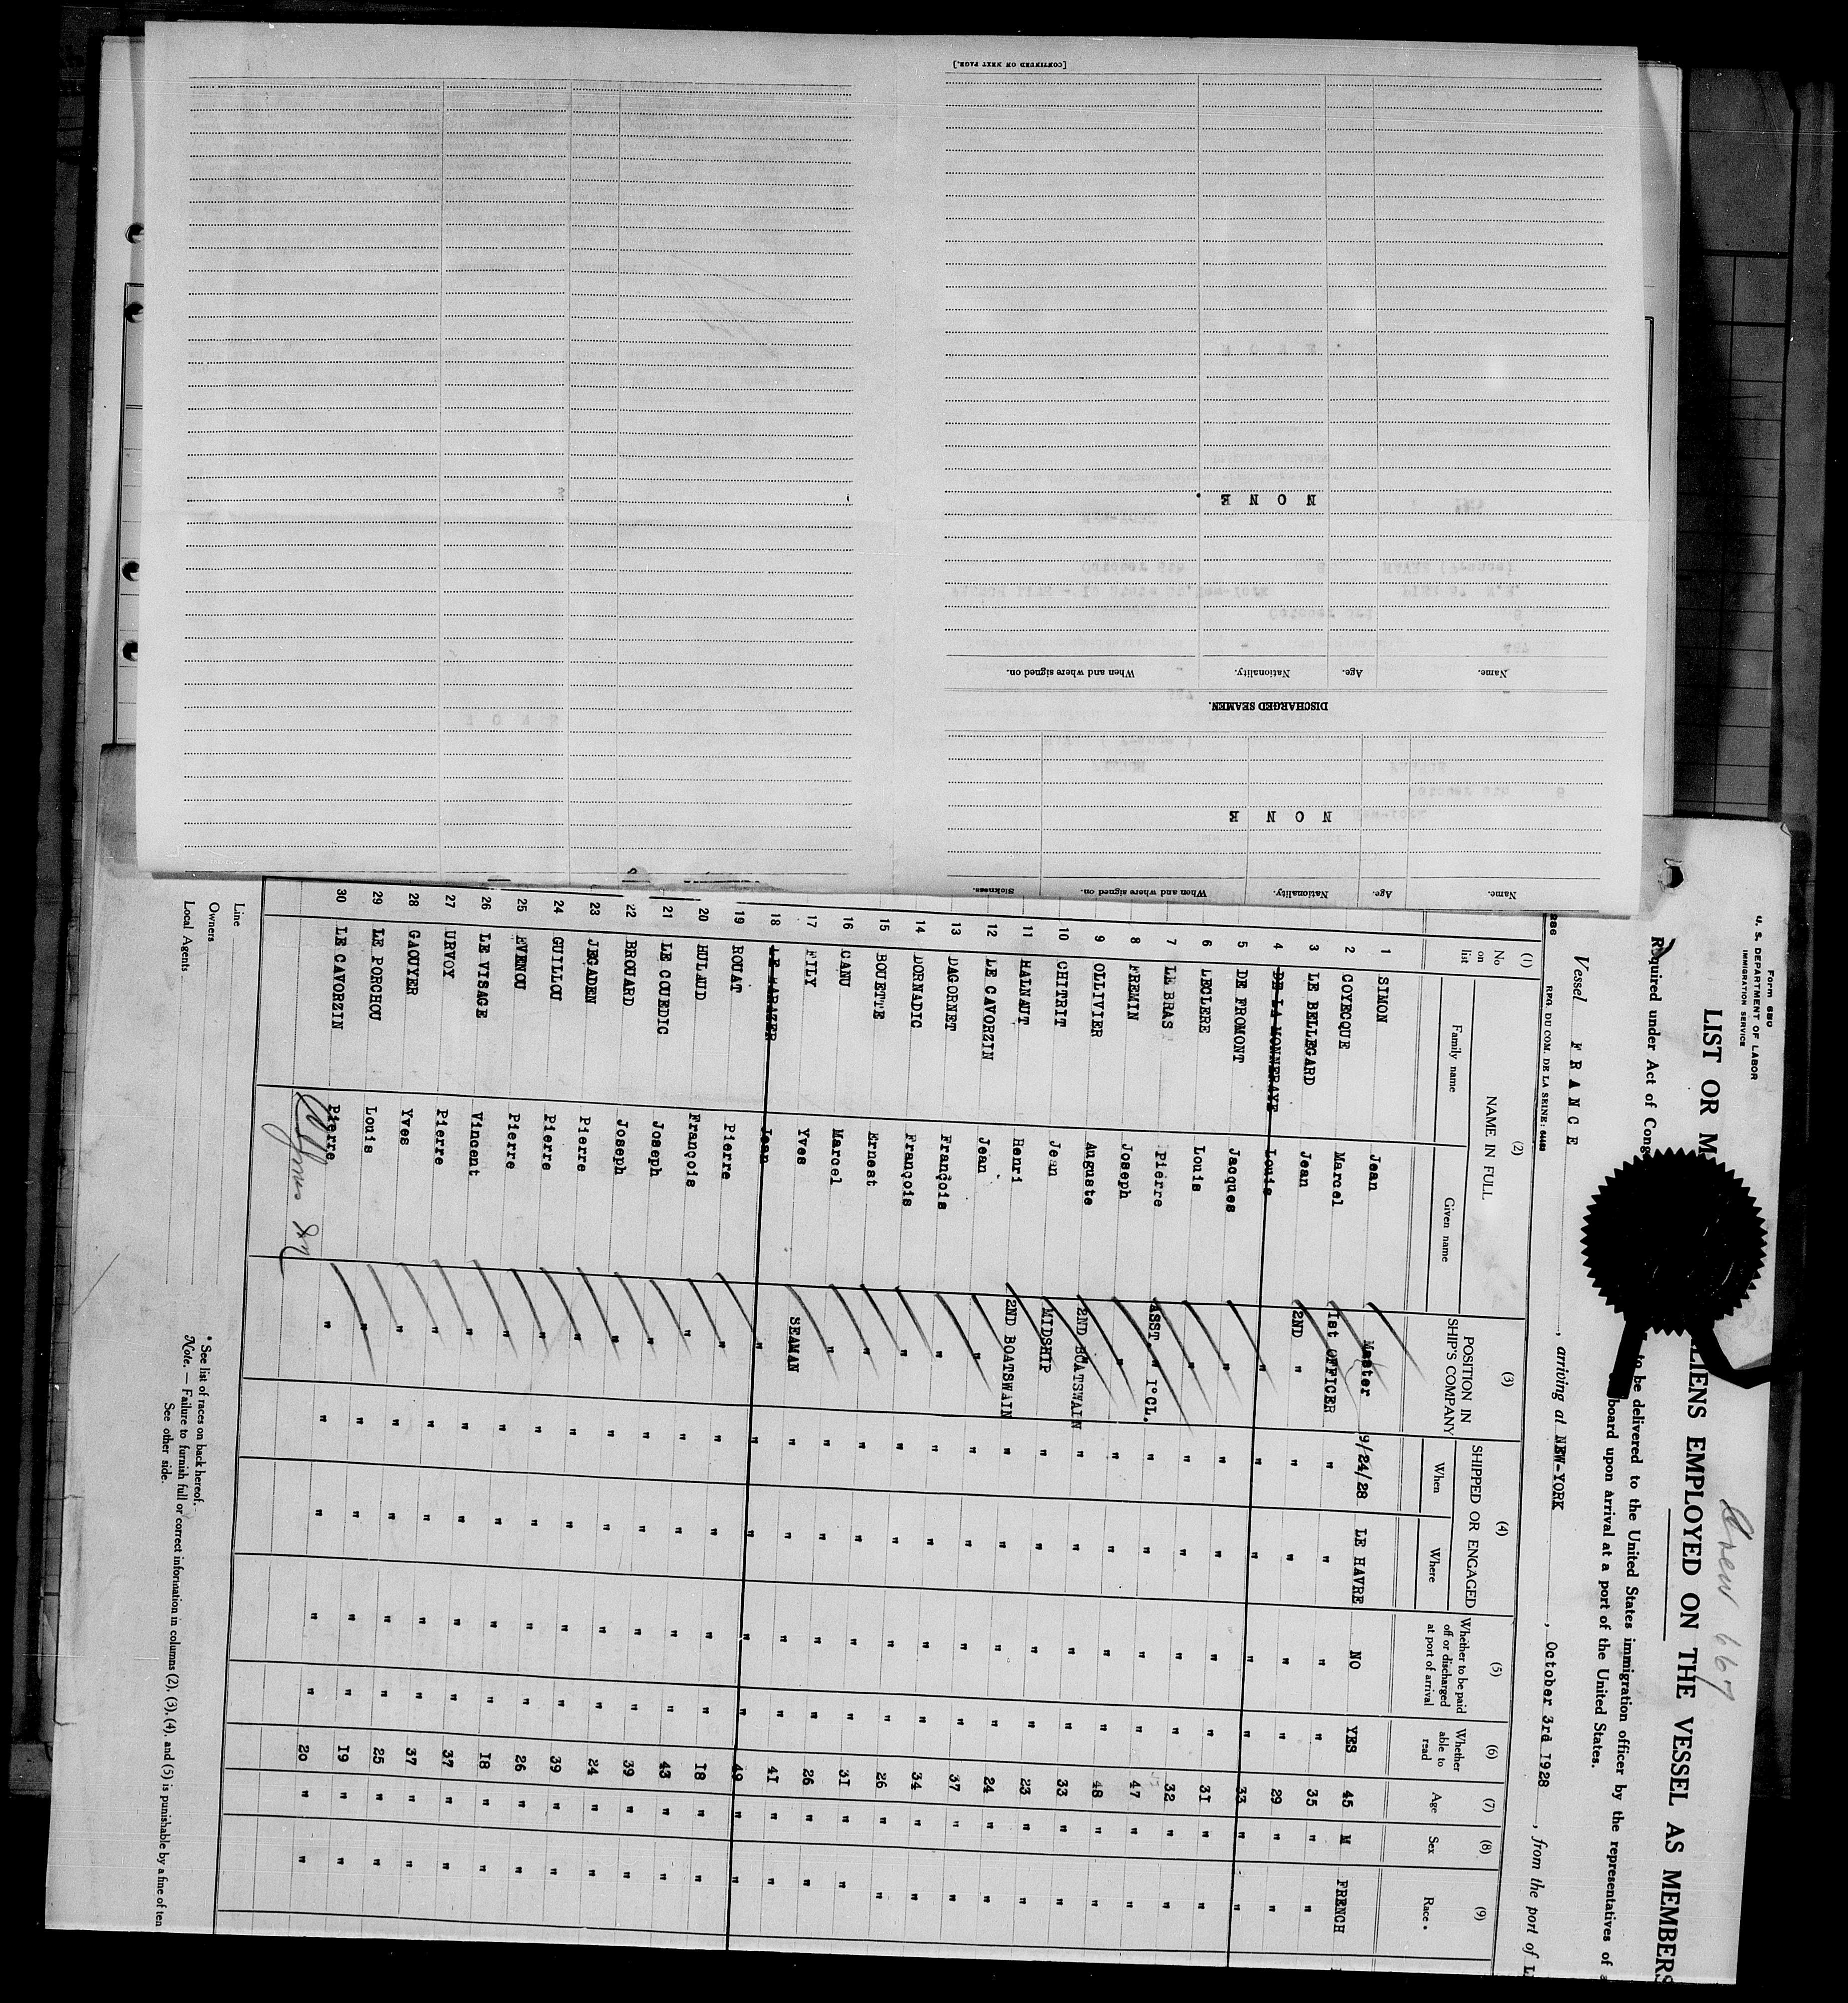 Name. Age. Nationality. When and where signed on. Sickness.
N O N E
DISCHARGED SEAMEN.
Name. Age. Nationality. When and where signed on.
N O N E
[CONTINUED ON NEXT PAGE.]
Form 680
U. S. DEPARTMENT OF LABOR
IMMIGRATION SERVICE
Crew 667
LIST OR M LIENS EMPLOYED ON THE VESSEL AS MEMBERS
Required under Act of Cong to be delivered to the United States immigration officer by the representatives of
board upon arrival at a port of the United States.
Vessel F R A N C E , arriving at NEW-YORK , October 3rd 1928 , from the port of L
286 REG. DU COM. DE LA SEINE :
(1) (2) (3) (4) (5) (6) (7) (8) (9)
No on list NAME IN FULL POSITION IN SHIP'S COMPANY SHIPPED OR ENGAGED Whether to be paid off or discharged at port of arrival Whether able to read Age Sex Race *
Family name Given name When Where
1 SIMON Jean Master 9/24/28 LE HAVRE NO YES 45 M FRENCH
2 GOYECQUE Marcel 1st OFFICER " " " " 35 " "
3 LE BELLEGARD Jean 2ND " " " " " 29 " "
4 DE LA MONNERAYE Louis " " " " " 33 " "
5 DE FROMONT Jacques " " " " " 31 " "
6 LECLERE Louis " " " " " 32 " "
7 LE BRAS Pierre ASST. " 1°CL. " " " " 47 " "
8 FREMIN Joseph " " " " " 48 " "
9 OLLIVIER Auguste 2ND BOATSWAIN " " " " 33 " "
10 CHITRIT Jean MIDSHIP " " " " 23 " "
11 HALNAUT Henri 2ND BOATSWAIN " " " " 24 " "
12 LE CAVORZIN Jean " " " " " 37 " "
13 DAGORNET François " " " " " 34 " "
14 DORNADIC François " " " " " 26 " "
15 BOUETTE Ernest " " " " " 31 " "
16 CANU Marcel " " " " " 26 " "
17 FILY Yves SEAMAN " " " " 41 " "
18 LE MARAZER Jean " " " " " 49 " "
19 ROUAT Pierre " " " " " 18 " "
20 HULAUD François " " " " " 43 " "
21 LE COUEDIC Joseph " " " " " 39 " "
22 BROUARD Joseph " " " " " 24 " "
23 JEGADEN Pierre " " " " " 39 " "
24 GUILLOU Pierre " " " " " 26 " "
25 EVENOU Pierre " " " " " 18 " "
26 LE VISAGE Vincent " " " " " 37 " "
27 URVOY Pierre " " " " " 37 " "
28 GAOUYER Yves " " " " " 25 " "
29 LE PORCHOU Louis " " " " " 19 " "
30 LE CAVORZIN Pierre " " " " " 20 " "
Line
Owners
Local Agents
* See list of races on back hereof.
Note. — Failure to furnish full or correct information in columns (2), (3), (4), and (5) is punishable by a fine of ten
See other side.